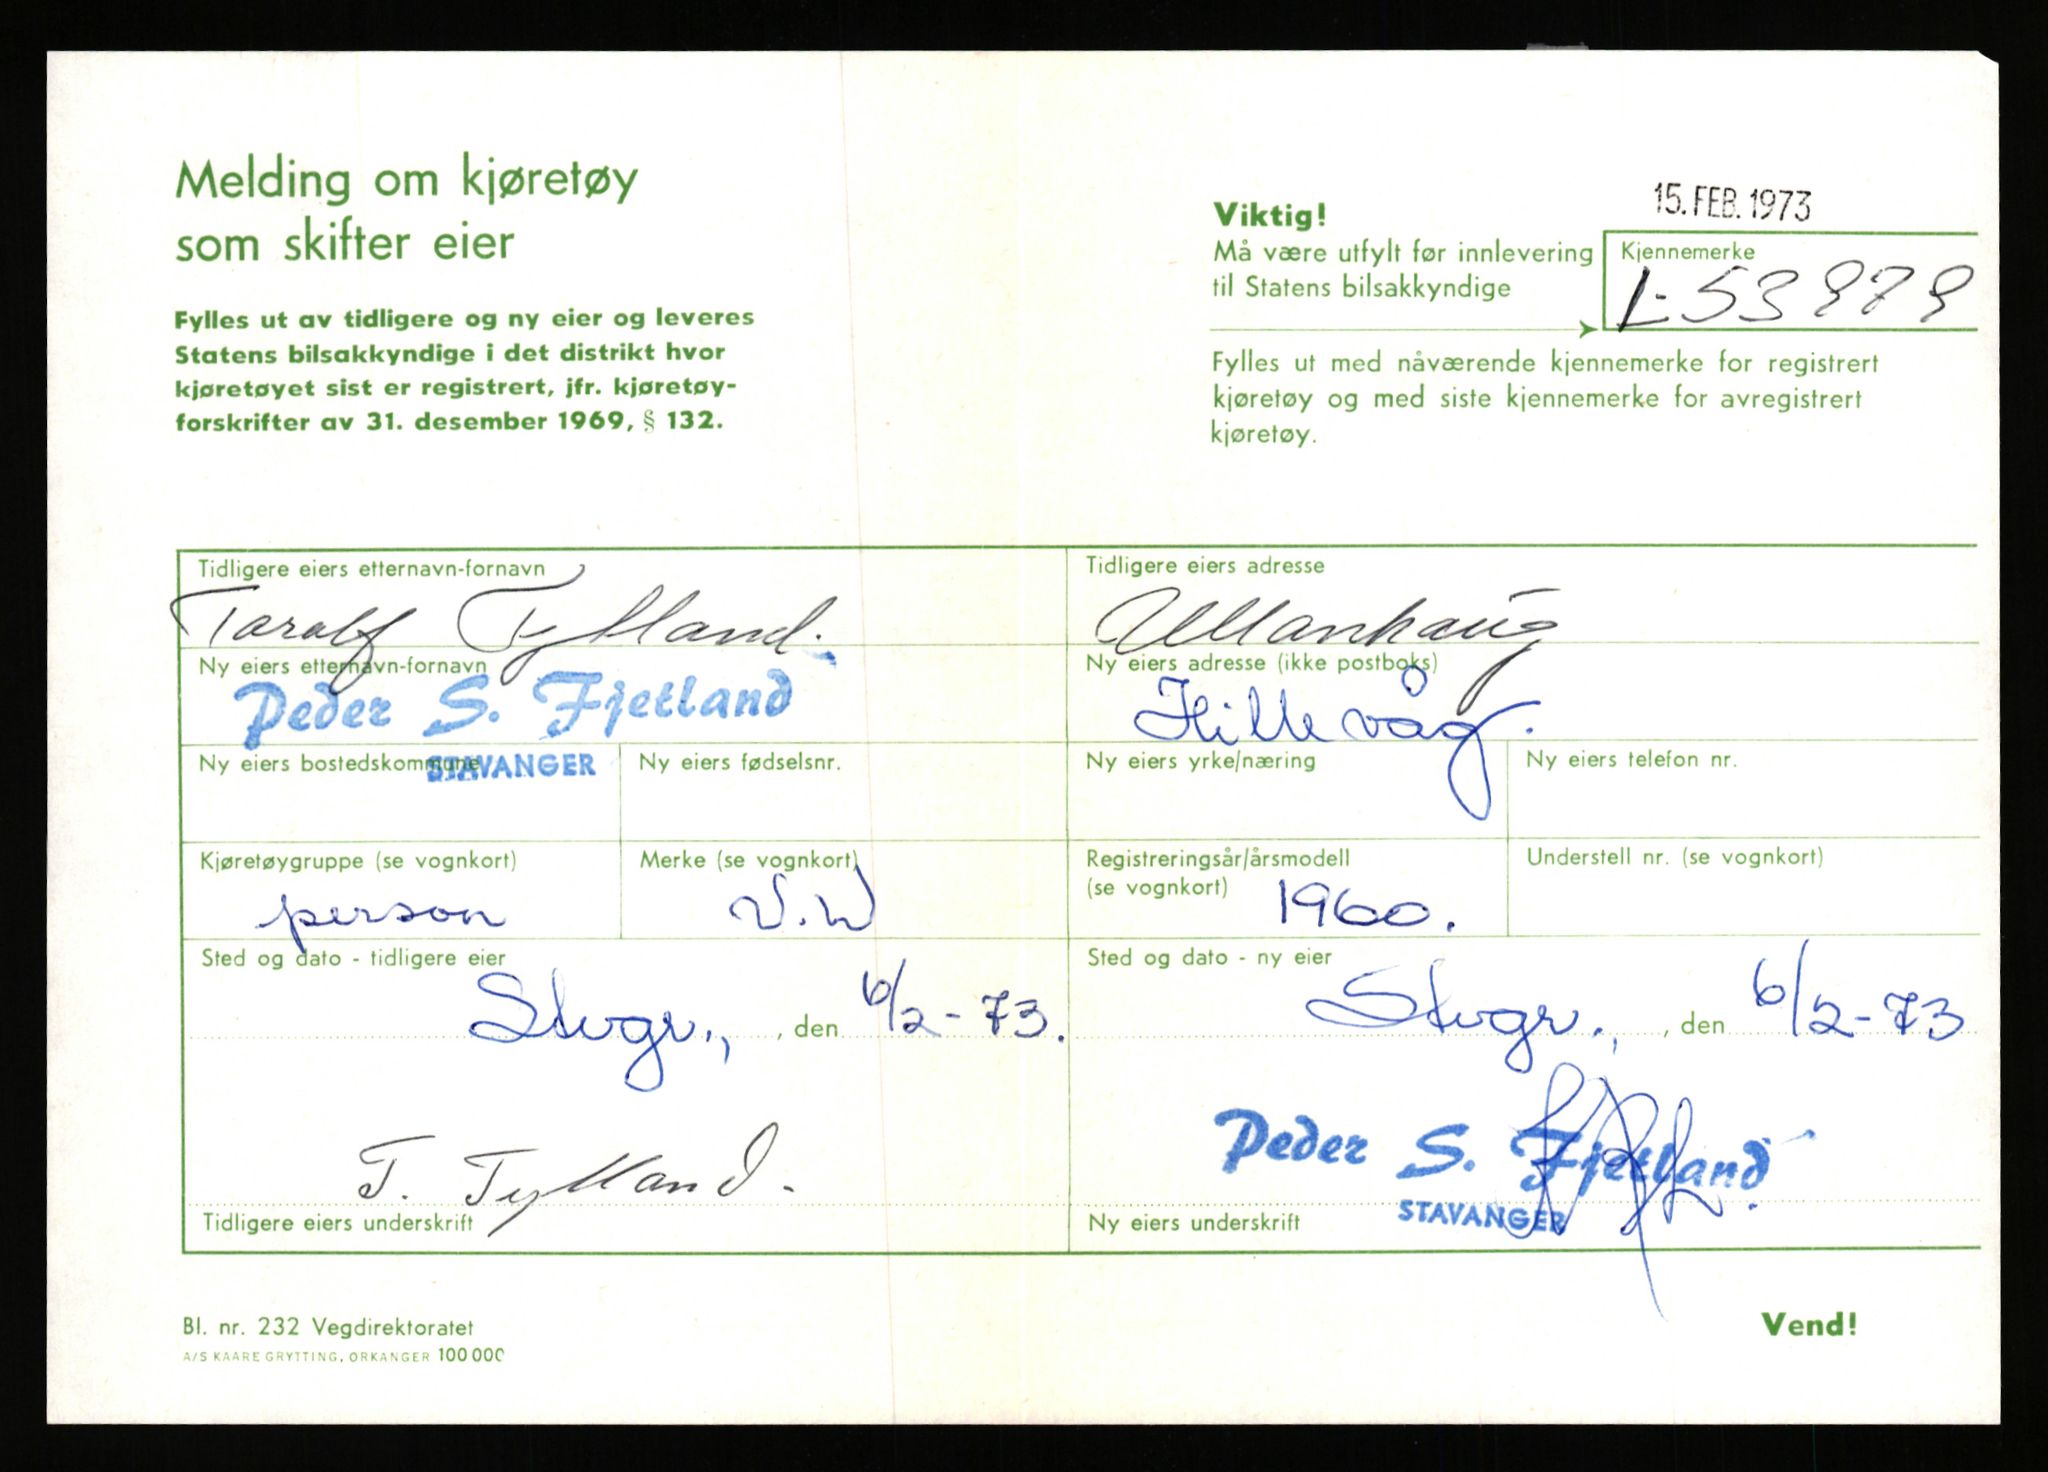 Melding om kjøretøy
som skifter eier
Fylles ut av tidligere og ny eier og leveres
Statens bilsakkyndige i det distrikt hvor
kjøretøyet sist er registrert, jfr. kjøretøy-
forskrifter av 31. desember 1969, § 132.
15. FEB. 1973
Viktig!
Må være utfylt før innlevering
til Statens bilsakkyndige
Kjennemerke
L-53979
Fylles ut med nåværende kjennemerke for registrert
kjøretøy og med siste kjennemerke for avregistrert
kjøretøy.
Tidligere eiers etternavn-fornavn
Toralf Tylland.
Tidligere eiers adresse
Ullanhaug
Ny eiers etternavn-fornavn
Peder S. Fjetland
STAVANGER
Ny eiers adresse (ikke postboks)
Hillevåg.
Ny eiers bostedskommune
Ny eiers fødselsnr.
Ny eiers yrke/næring
Ny eiers telefon nr.
Kjøretøygruppe (se vognkort)
person
Merke (se vognkort)
V.W
Registreringsår/årsmodell
(se vognkort)
1960.
Understell nr. (se vognkort)
Sted og dato - tidligere eier
Stvgr., , den 6/2-73.
Sted og dato - ny eier
Stvgr., , den 6/2-73
T. Tylland.
Tidligere eiers underskrift
Peder S. Fjetland
STAVANGER
Ny eiers underskrift
Bl. nr. 232 Vegdirektoratet
A/S KAARE GRYTTING, ORKANGER 100 000
Vend!